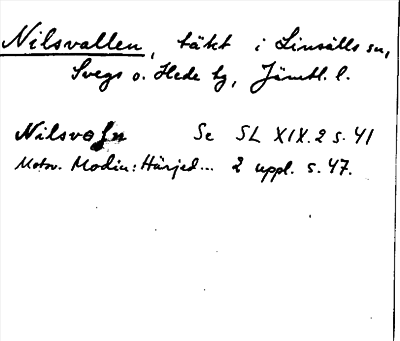 Nilsvallen, täkt i Linsälls sn,
Svegs o. Hede tg, Jämtl. l.
Nilsvaln Se SL XIX.2 s. 41
Motsv. Modin: Härjed... 2 uppl. s. 47.